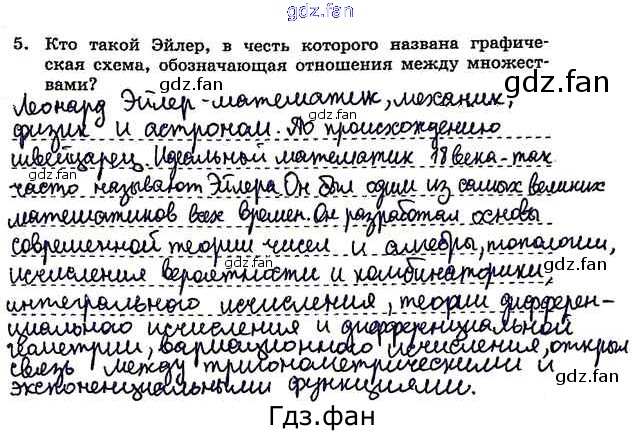 gdz.fan
5. Кто такой Эйлер, в честь которого названа графиче-
ская схема, обозначающая отношения между множест-
вами?
gdz.fan gdz.fan
Леонард Эйлер-математик, механик,
физик и астроном. По происхождению
gdz.fan gdz.fan
швейцарец. Идеальный математик 18 века-так
часто называют Эйлера. Он был один из самых великих
gdz.fan gdz.fan
математиков всех времен. Он разработал основы
современной теории чисел и алгебры, топологии,
gdz.fan gdz.fan
исчисления вероятности и комбинаторики,
интегрального исчисления, теории дифферен-
gdz.fan gdz.fan
циального исчисления и дифференциальной
геометрии, вариационного исчисления, открыл
связь между тригонометрическими и
gdz.fan gdz.fan
экспоненциальными функциями.
Гдз.фан